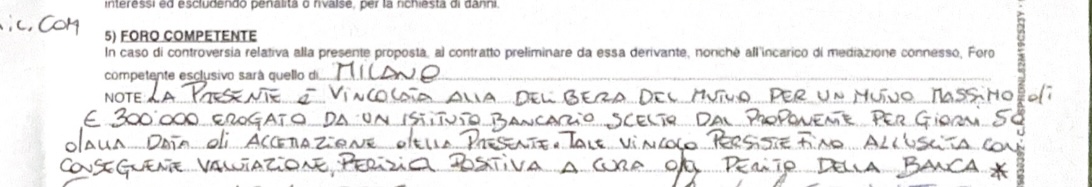 interessi ed escludendo penalità o rivalse, per la richiesta di danni.
ic.COM
5) FORO COMPETENTE
In caso di controversia relativa alla presente proposta, al contratto preliminare da essa derivante, nonchè all'incarico di mediazione connesso, Foro
competente esclusivo sarà quello di MILANO
NOTE LA PRESENTE È VINCOLATA ALLA DELIBERA DEL MUTUO PER UN MUTUO MASSIMO di
€ 300'000 EROGATO DA UN ISTITUTO BANCARIO SCELTO DAL PROPONENTE PER GIORNI 50
dALLA DATA di ACCETTAZIONE dELLA PRESENTE. TALE VINCOLO PERSISTE FINO ALL'USCITA CON
CONSEGUENTE VALUTAZIONE, PERIZIA POSITIVA A CURA PERITO DELLA BANCA *